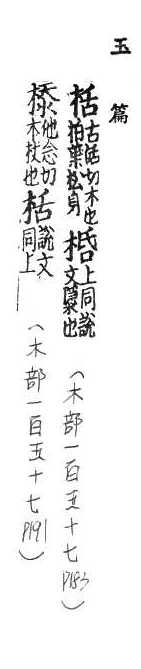 玉篇
栝古活切木也柏葉松身桰上同說文檃也（木部一百五十七P183）
㮇他念切木杖也栝說文同上（木部一百五十七P191）